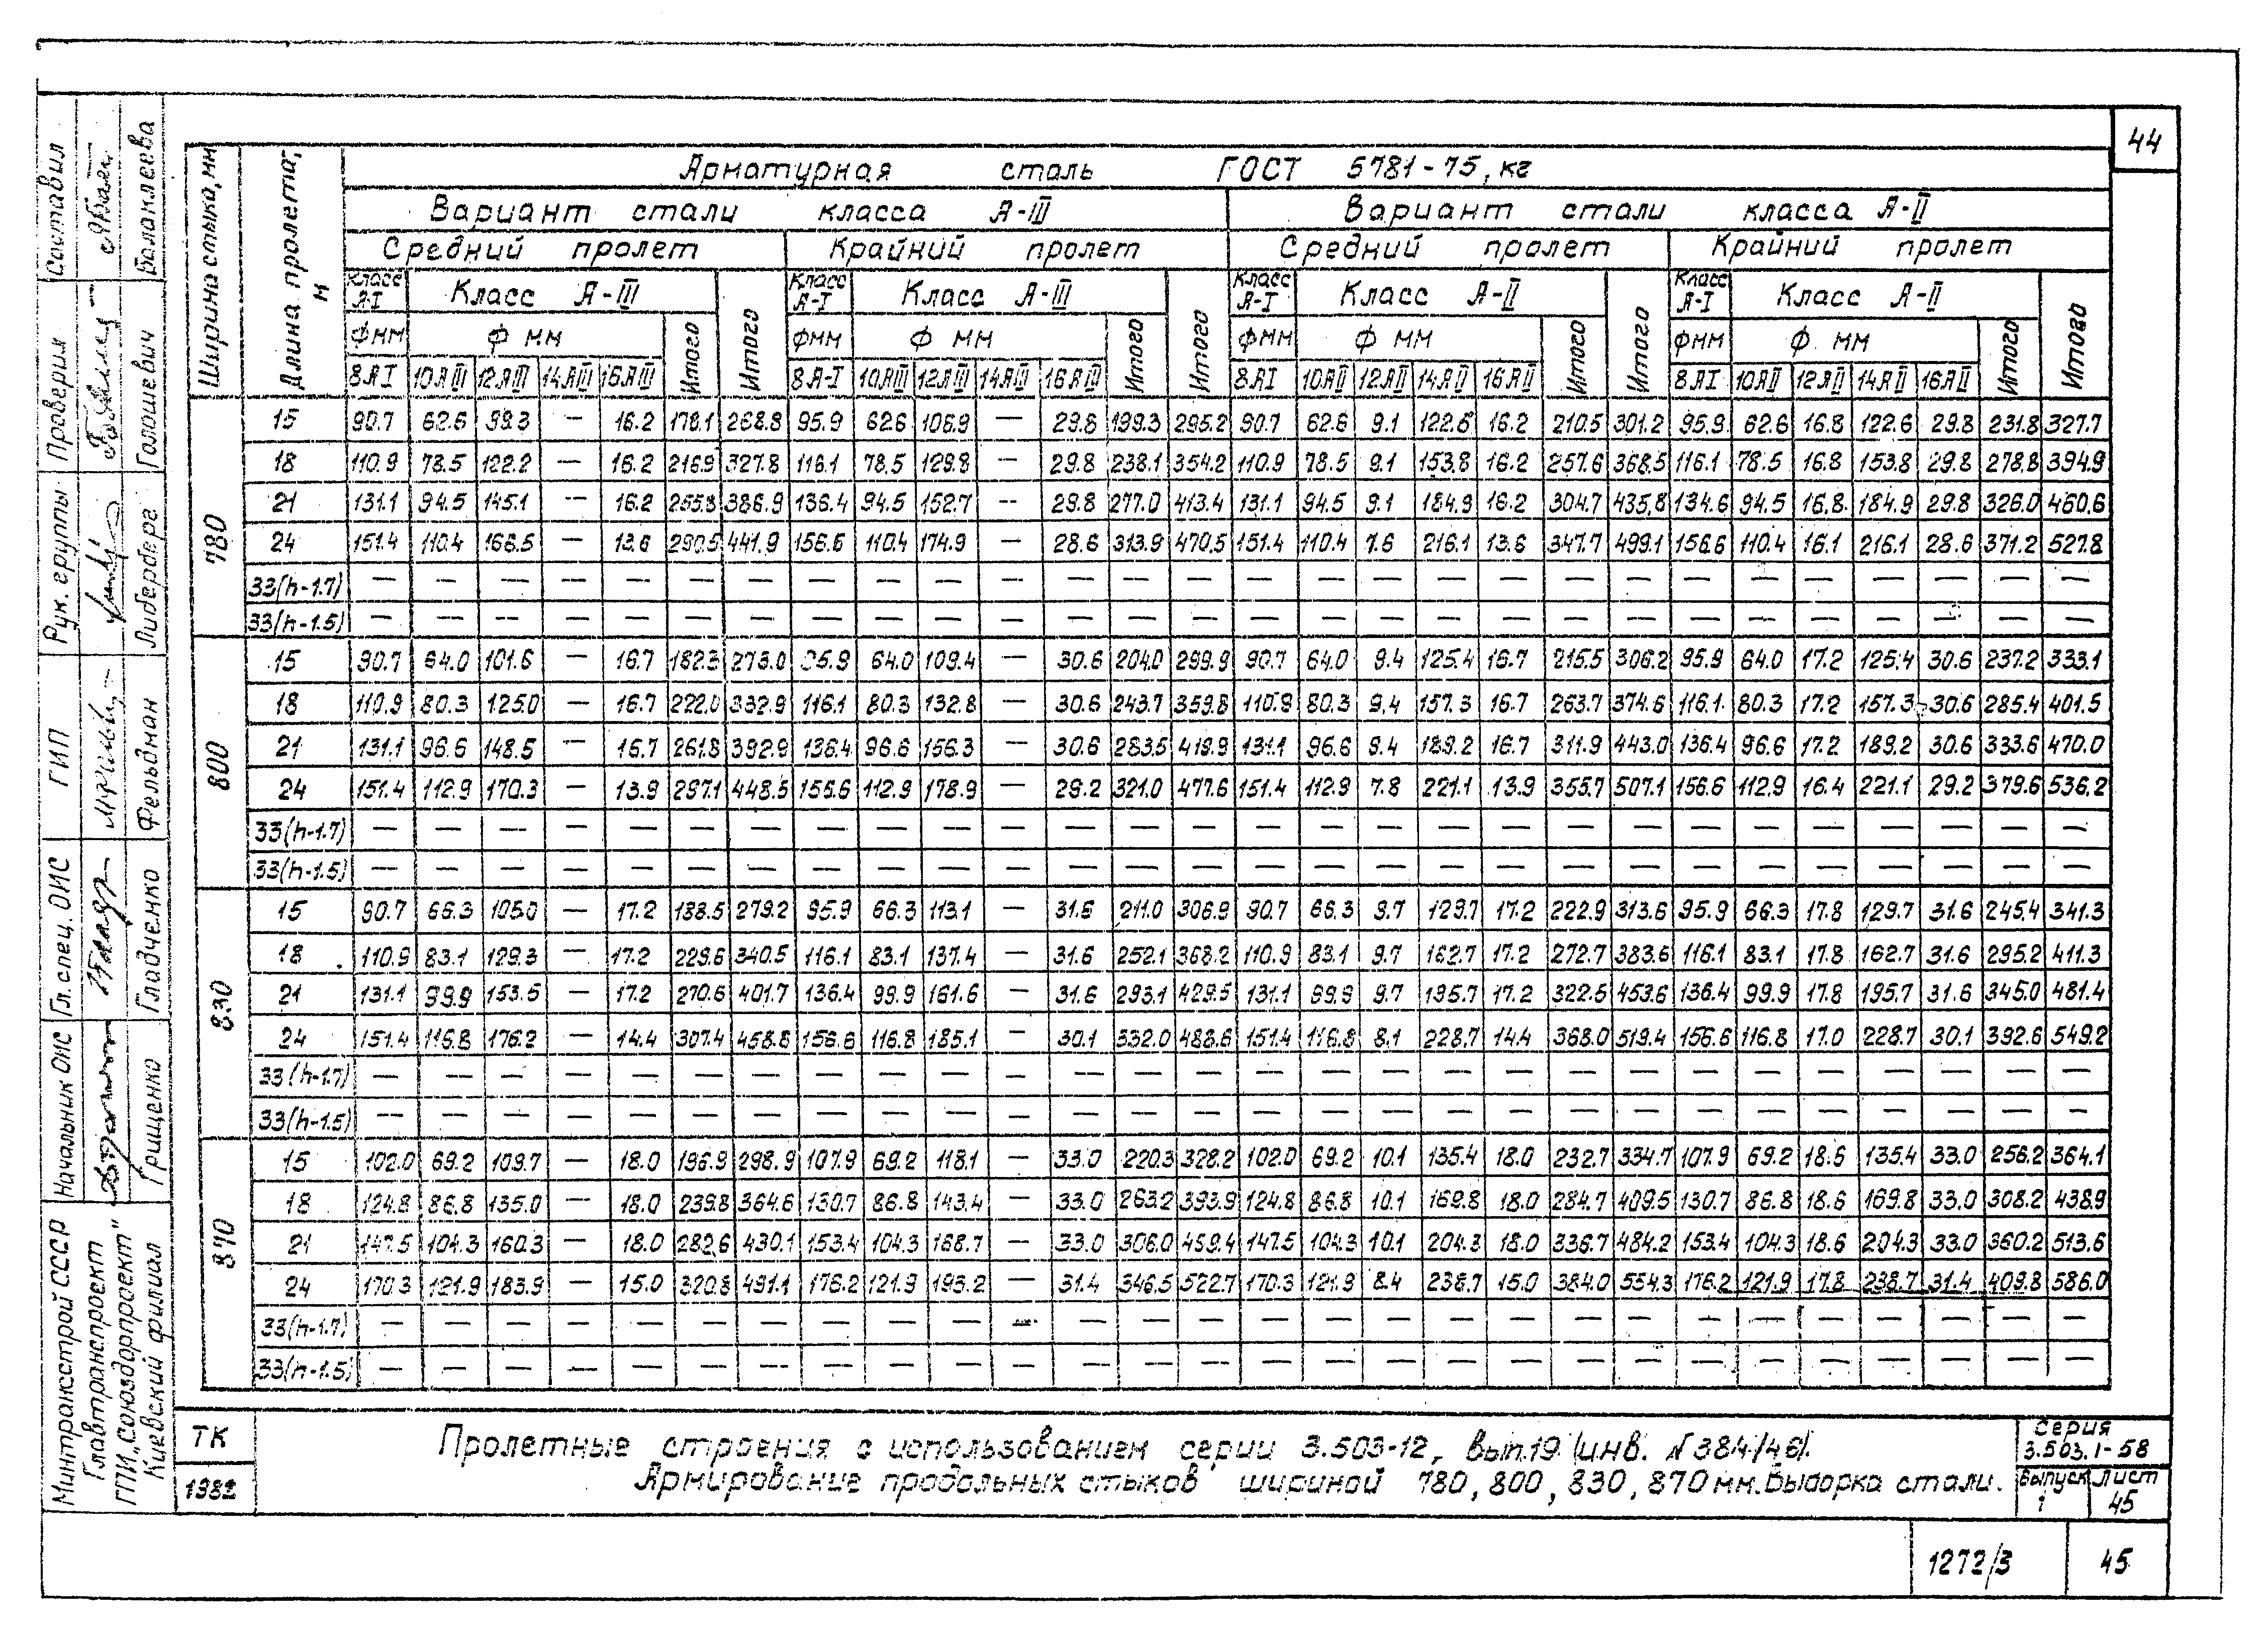 44
Ширина стыка, мм
Длина пролета, м
Арматурная сталь ГОСТ 5781-75, кг
Вариант стали класса А-III Вариант стали класса А-II
Средний пролет Крайний пролет Средний пролет Крайний пролет
Класс А-I Класс А-III Итого Класс А-I Класс А-III Итого Класс А-I Класс А-II Итого Класс А-I Класс А-II Итого
Фмм Ф мм Итого Фмм Ф мм Итого Фмм Ф мм Итого Фмм Ф мм Итого
8АI 10АIII 12АIII 14АIII 16АIII 8А-I 10АIII 12АIII 14АIII 16АIII 8АI 10АII 12АII 14АII 16АII 8АI 10АII 12АII 14АII 16АII
780
15 90.7 62.6 99.3 — 16.2 178.1 268.8 95.9 62.6 106.9 — 29.8 199.3 295.2 90.7 62.6 9.1 122.6 16.2 210.5 301.2 95.9 62.6 16.8 122.6 29.8 231.8 327.7
18 110.9 78.5 122.2 — 16.2 216.9 327.8 116.1 78.5 129.8 — 29.8 238.1 354.2 110.9 78.5 9.1 153.8 16.2 257.6 368.5 116.1 78.5 16.8 153.8 29.8 278.8 394.9
21 131.1 94.5 145.1 — 16.2 255.8 386.9 136.4 94.5 152.7 — 29.8 277.0 413.4 131.1 94.5 9.1 184.9 16.2 304.7 435.8 134.6 94.5 16.8 184.9 29.8 326.0 460.6
24 151.4 110.4 166.5 — 13.6 290.5 441.9 156.6 110.4 174.9 — 28.6 313.9 470.5 151.4 110.4 7.6 216.1 13.6 347.7 499.1 156.6 110.4 16.1 216.1 28.6 371.2 527.8
33(h-1.7) — — — — — — — — — — — — — — — — — — — — — — — — — — — —
33(h-1.5) — — — — — — — — — — — — — — — — — — — — — — — — — — — —
800
15 90.7 64.0 101.6 — 16.7 182.3 273.0 95.9 64.0 109.4 — 30.6 204.0 299.9 90.7 64.0 9.4 125.4 16.7 215.5 306.2 95.9 64.0 17.2 125.4 30.6 237.2 333.1
18 110.9 80.3 125.0 — 16.7 222.0 332.9 116.1 80.3 132.8 — 30.6 243.7 359.8 110.9 80.3 9.4 157.3 16.7 263.7 374.6 116.1 80.3 17.2 157.3 30.6 285.4 401.5
21 131.1 96.6 148.5 — 16.7 261.8 392.9 136.4 96.6 156.3 — 30.6 283.5 419.9 131.1 96.6 9.4 189.2 16.7 311.9 443.0 136.4 96.6 17.2 189.2 30.6 333.6 470.0
24 151.4 112.9 170.3 — 13.9 297.1 448.5 156.6 112.9 178.9 — 29.2 321.0 477.6 151.4 112.9 7.8 221.1 13.9 355.7 507.1 156.6 112.9 16.4 221.1 29.2 379.6 536.2
33(h-1.7) — — — — — — — — — — — — — — — — — — — — — — — — — — — —
33(h-1.5) — — — — — — — — — — — — — — — — — — — — — — — — — — — —
830
15 90.7 66.3 105.0 — 17.2 188.5 279.2 95.9 66.3 113.1 — 31.6 211.0 306.9 90.7 66.3 9.7 129.7 17.2 222.9 313.6 95.9 66.3 17.8 129.7 31.6 245.4 341.3
18 110.9 83.1 129.3 — 17.2 229.6 340.5 116.1 83.1 137.4 — 31.6 252.1 368.2 110.9 83.1 9.7 162.7 17.2 272.7 383.6 116.1 83.1 17.8 162.7 31.6 295.2 411.3
21 131.1 99.9 153.5 — 17.2 270.6 401.7 136.4 99.9 161.6 — 31.6 293.1 429.5 131.1 99.9 9.7 195.7 17.2 322.5 453.6 136.4 99.9 17.8 195.7 31.6 345.0 481.4
24 151.4 116.8 176.2 — 14.4 307.4 458.8 156.6 116.8 185.1 — 30.1 332.0 488.6 151.4 116.8 8.1 228.7 14.4 368.0 519.4 156.6 116.8 17.0 228.7 30.1 392.6 549.2
33(h-1.7) — — — — — — — — — — — — — — — — — — — — — — — — — — — —
33(h-1.5) — — — — — — — — — — — — — — — — — — — — — — — — — — — —
870
15 102.0 69.2 109.7 — 18.0 196.9 298.9 107.9 69.2 118.1 — 33.0 220.3 328.2 102.0 69.2 10.1 135.4 18.0 232.7 334.7 107.9 69.2 18.6 135.4 33.0 256.2 364.1
18 124.8 86.8 135.0 — 18.0 239.8 364.6 130.7 86.8 143.4 — 33.0 263.2 393.9 124.8 86.8 10.1 169.8 18.0 284.7 409.5 130.7 86.8 18.6 169.8 33.0 308.2 438.9
21 147.5 104.3 160.3 — 18.0 282.6 430.1 153.4 104.3 168.7 — 33.0 306.0 459.4 147.5 104.3 10.1 204.3 18.0 336.7 484.2 153.4 104.3 18.6 204.3 33.0 360.2 513.6
24 170.3 121.9 183.9 — 15.0 320.8 491.1 176.2 121.9 193.2 — 31.4 346.5 522.7 170.3 121.9 8.4 238.7 15.0 384.0 554.3 176.2 121.9 17.8 238.7 31.4 409.8 586.0
33(h-1.7) — — — — — — — — — — — — — — — — — — — — — — — — — — — —
33(h-1.5) — — — — — — — — — — — — — — — — — — — — — — — — — — — —
Составил Балаклеева
Проверил Голошевич
Рук. группы Либерберг
ГИП Фельдман
Гл. спец. ОИС Гладченко
Начальник ОИС Грищенко
Минтрансстрой СССР
Главтранспроект
ГПИ „Союздорпроект"
Киевский филиал
ТК
1982
Пролетные строения с использованием серии 3.503-12, вып.19 (инв. № 384/46).
Армирование продольных стыков шириной 780, 800, 830, 870 мм. Выборка стали.
Серия
3.503.1-58
Выпуск Лист
1 45
1272/3 45